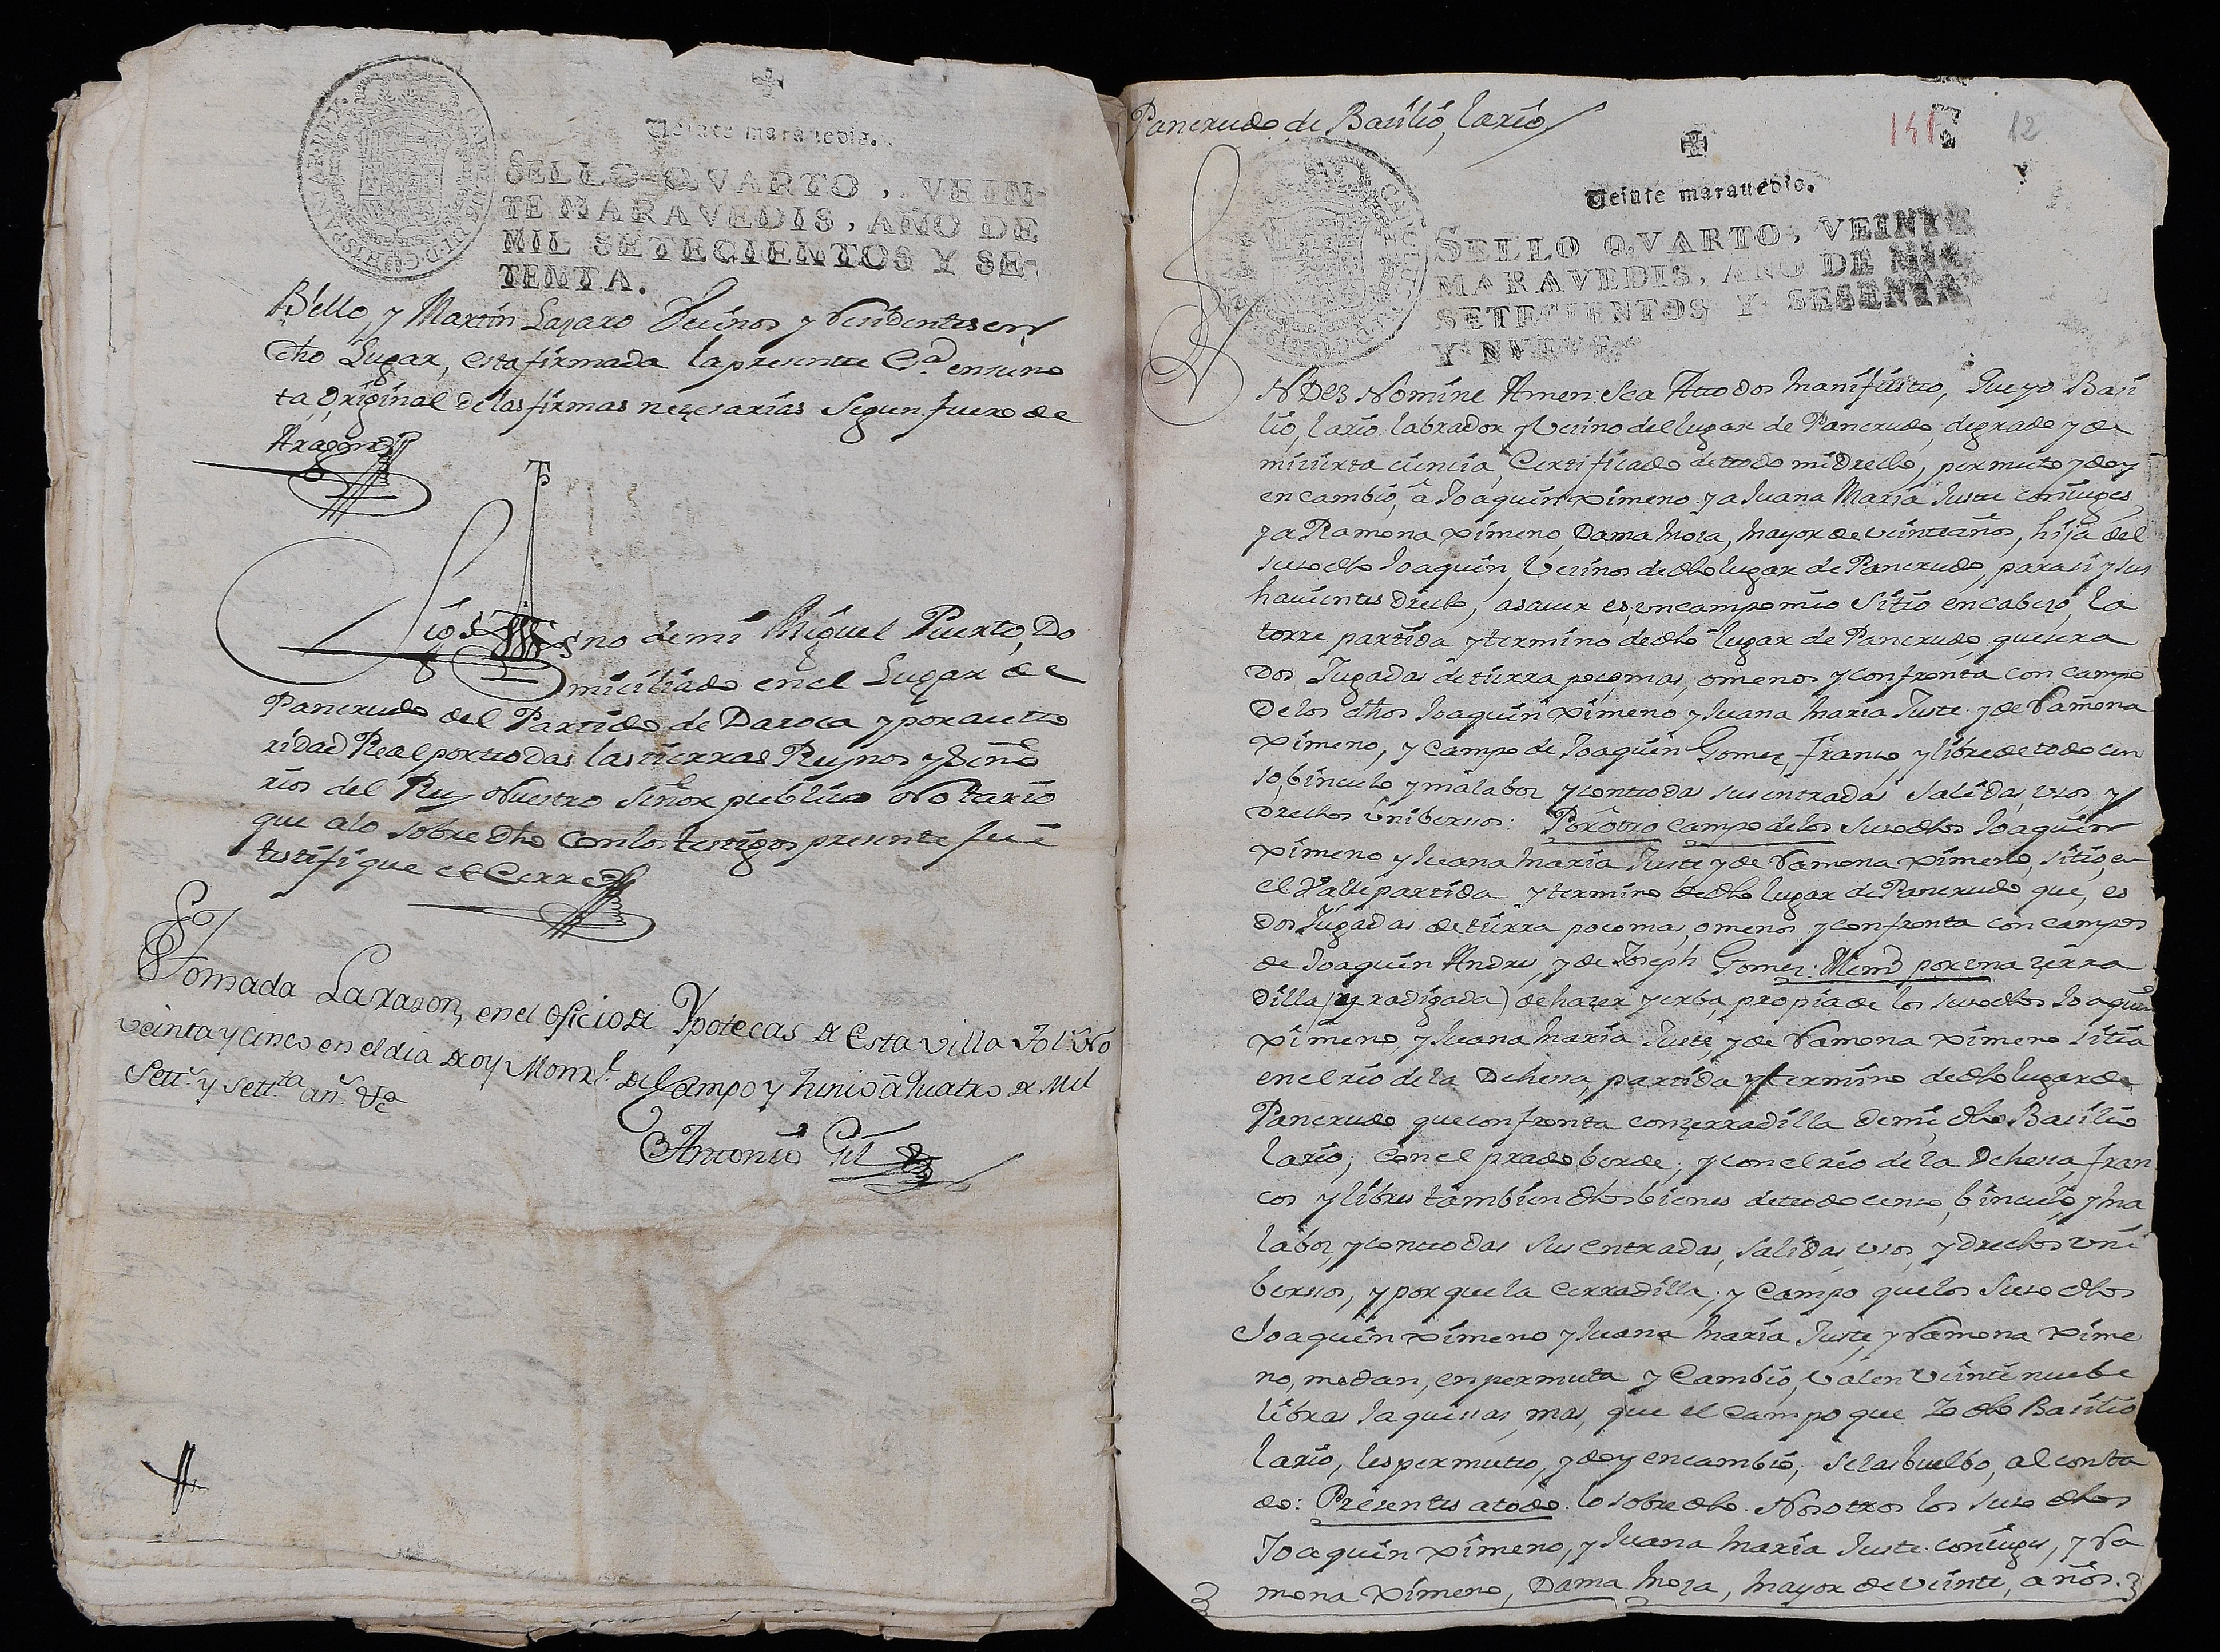 Veinte maravedis.
SELLO QVARTO, VEIN-
TE MARAVEDIS, AÑO DE
MIL SETECIENTOS Y SE-
TENTA.
Bello, y Martin Lazaro Vecinos y Residentes en
dho Lugar, esta firmada la presente Csª. en su no
ta Original de las firmas neçesarias Segun fuero de
Aragon
Sig no de mi Miguel Puerto, Do
miciliado en el Lugar de
Pancrudo del Partido de Daroca y por autto
ridad Real por ttodas las tierras Reynos y Seño
rios del Rey Nuestro Señor publico Notario
que a lo sobre dho con los testigos presente fui
testifique et Cerre
Tomada La razon, en el oficio de Ypotecas de Esta villa fol. No
veinta y cinco en el dia de oy Monrl. del Campo y Junio â quatro de Mil
Settˢ. y Settᵗᵃ anˢ.
Antonio Gil
Pancrudo de Basilio, lario
141
12
Veinte maravedis.
SELLO QVARTO, VEINTE
MARAVEDIS, AÑO DE MIL
SETECIENTOS Y SESENTA
Y NVEVE.
N Dei Nomine Amen: Sea Atodos manifiestto, Que yo Basi
lio, lario labrador y Vecino del lugar de Pancrudo, de grado y de
mi cierta ciencia, Certificado de ttodo mi Drecho, permuto y doy
en cambio, â Joaquin Ximeno y a Juana Maria Juste coniuges,
y a Ramona Ximeno, Dama Moza, mayor de veinte años, hija del
suso dho Joaquin, Vecinos de dho lugar de Pancrudo, para si y sus
havientes drecho, a saver es, un campo mio Sitio en cabezo, la
torre partida y termino de dho lugar de Pancrudo, que sera
Dos Jugadas de tierra poco mas, o menos y confronta con campo
De los dhos Joaquin Ximeno y Juana Maria Juste y de Ramona
Ximeno, y campo de Joaquin Gomez, franco y libre de todo cen
so, binculo y mala boz y con ttodas sus entradas salidas, usos, y
Drechos Unibersos: Por otro campo de los suso dhos Joaquin
Ximeno y Juana Maria Juste y de Ramona Ximeno, sitio, en
el Valle partida y termino de dho lugar de Pancrudo que, es
Dos Jugadas de tierra poco mas, o menos y confronta con campos
de Joaquin Andres, y de Joseph Gomez: Y por una zerra
dilla de hazer yerba, propia de los suso dhos Joaquin
Ximeno, y Juana Maria Juste, y de Ramona Ximeno sitia
en el rio de la Dehesa, partida y termino de dho lugar de
Pancrudo que confronta con zerradilla de mi, dho Basilio
lario; con el prado borde; y con el rio de la Dehesa, fran
cos y libres tambien dhos bienes de ttodo censo, binculo, y ma
la boz, y con ttodas sus entradas, salidas, usos, y drechos uni
bersos, y por que la Cerradilla, y Campo que los suso dhos
Joaquin Ximeno y Juana Maria Juste, y Ramona Xime
no, me dan, en permuta y Cambio, valen Veinte nuebe
libras Jaquesas, mas, que el campo que Yo dho Basilio
lario, les permuto, y doy en cambio; se las buelbo, al conta
do: Presentes a todo lo sobre dho Nosotros los suso dhos
Joaquin Ximeno, y Juana Maria Juste coniuges, y Ra
mona Ximeno, Dama Moza, mayor de veinte, años.